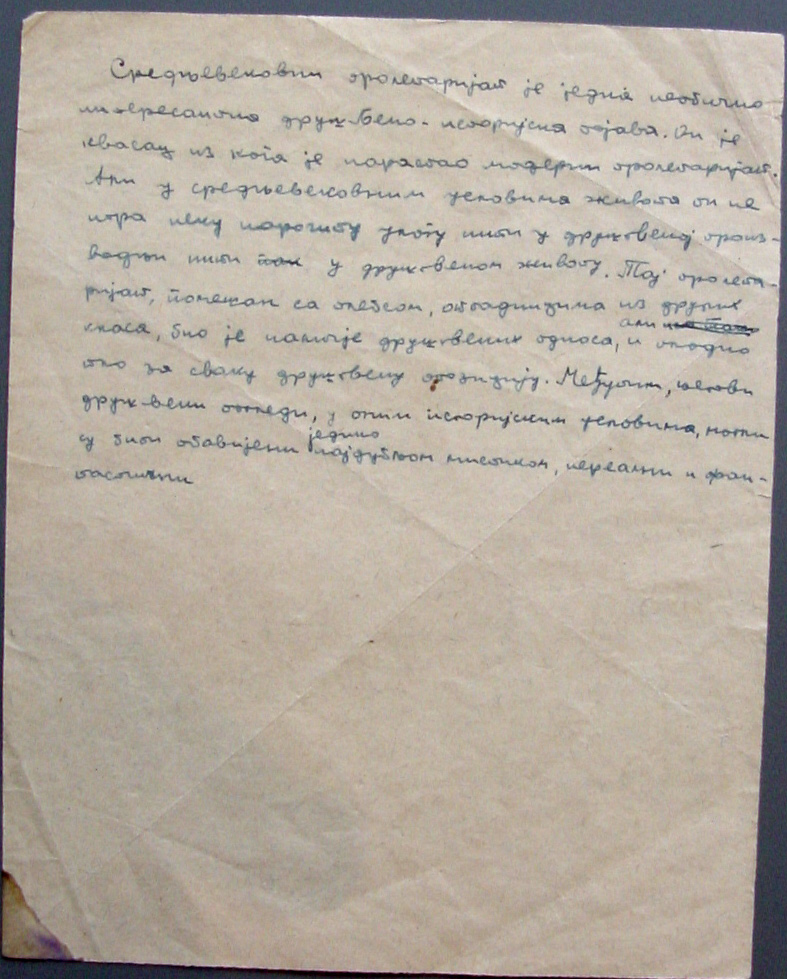 Средњевековни пролетаријат је једна необично
интересантна друштвено-историјска појава. Он је
квасац из кога је нарастао модерни пролетаријат.
Али у средњевековним условима живота он не
игра неку нарочиту улогу нити у друштвеној произ-
водњи нити у друштвеном животу. Тај пролета-
ријат, помешан са плебсом, отпадницима из других
класа, био је највише друштвених односа, али и
тло за сваку друштвену опозицију. Међутим, његови
друштвени погледи, у оним историјским условима, могли
су бити обавијени једино најдубљом мистиком, нереални и фан-
тастични